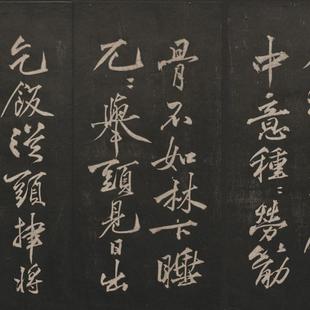 中意種〻勞筋
骨不如林下睡
兀〻舉頭見日出
乞飯從頭律將